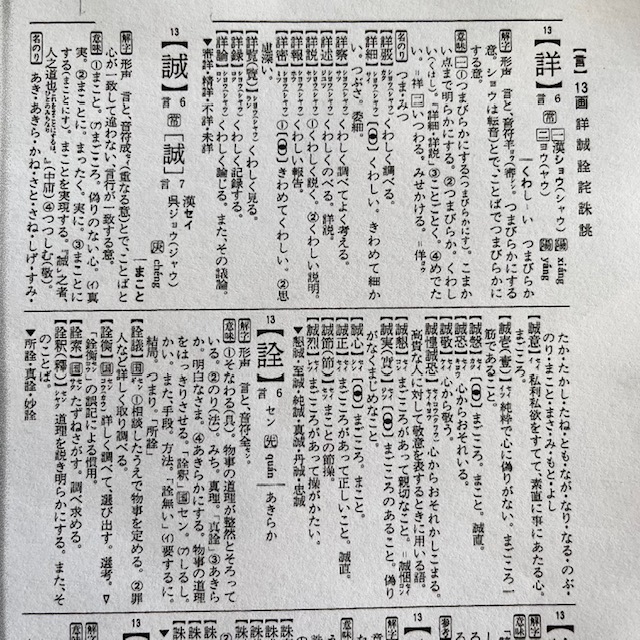 【言】13画 詳 誠 詮 詫 誅 誂
13
【詳】
言6
くわしい つまびらか
解字 形声 言と、音符羊
つまびらかにする
意。ショウは転音)とで、ことばでつまびらかに
する意。
い点まで明らかにする。②つまびらか。くわし
い。(くはし)。「詳細・詳説」③ことごとく。④めでた
い。=祥 二いつわる。みせかける。=佯
名のり つま・みつ
【詳覈】くわしく調べる。
【詳細】くわしい。きわめて細か
い。つぶさ。委細。
【詳察】くわしく調べてよく考える。
【詳述】くわしくのべる。詳説。
【詳説】①くわしく説く。②くわしい説明。
【詳報】くわしい報告。
【詳密】①きわめてくわしい。②思
慮深い。
【詳覧(覽)】くわしく見る。
【詳録】くわしく記録する。
【詳論】くわしく論じる。また、その議論。
▼審詳・精詳・不詳・未詳
13
【誠】
言6
【誠】
言7
漢セイ
呉ジョウ(ジャウ)
chéng
まこと
解字 形声 言と、音符成(重なる意)とで、ことばと
心が一致して違わない、言行が一致する意。
意味 ①まこと。(ア)まごころ。偽りのない心。(イ)真
実。②まことに。まったく。実に。③まことに
する(まことにす)。まことを実現する。「誠レ之者、
人之道也」〔中庸〕④つつしむ(敬)。
名のり あき・あきら・かね・さと・さね・しげ・すみ・
たか・たかし・たね・とも・なが・なり・なる・のぶ・
のり・まこと・まさ・み・もと・よし
【誠意】私利私欲をすてて、素直に事にあたる心。
まごころ。
【誠壱(壹)】純粋で心に偽りがない。まごころ一
筋であること。
【誠愨】まごころ。まこと。誠直。
【誠恐】心からおそれいる。
【誠敬】心から敬う。
【誠惶誠恐】心からおそれかしこまる。
高貴な人に対して敬意を表するときに用いる語。
【誠懇】まごころがあって親切なこと。=誠悃
【誠実(實)】まごころのあること。偽り
がなくまじめなこと。
【誠心】まごころ。まこと。
【誠正】まごころがあって正しいこと。誠直。
【誠節(節)】まことの節操。
【誠烈】まごころがあって操がかたい。
▼懇誠・至誠・純誠・真誠・丹誠・忠誠
13
【詮】
言6
セン
quán
あきらか
解字 形声 言と、音符全
意味 ①そなわる(具)。物事の道理が整然とそろって
いる。②のり(法)。みち。真理。「真詮」③あきら
か。明白なさま。④あきらかにする。物事の道理
をはっきりさせる。「詮釈」国セン。(ア)しるし。
かい。また、手段。方法。「詮無い」(イ)要するに。
結局。つまり。「所詮」
【詮議】国①相談したうえで物事を定める。②罪
人などを詳しく取り調べる。
【詮衡】詳しく調べて、選び出す。選考。▽
「銓衡」の誤記による慣用。
【詮索】国たずねさがす。調べ求める。
【詮釈(釋)】道理を説き明らかにする。また、そ
のことば。
▼所詮・真詮・妙詮